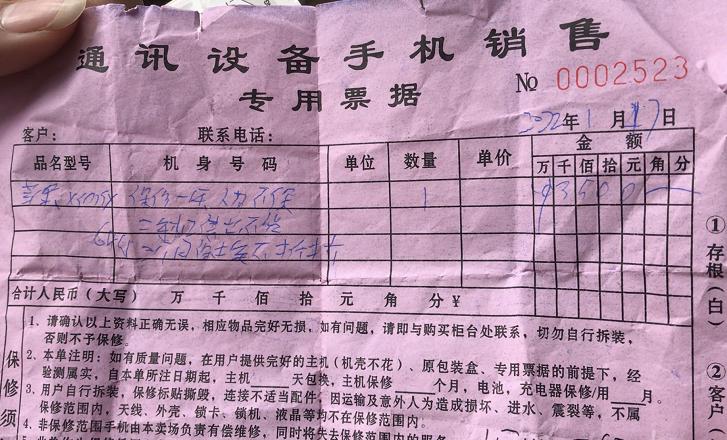 通讯设备手机销售
№ 0002523
专用票据
2022年1月17日
客户： 联系电话：
品名型号 机身号码 单位 数量 单价 金额
万 千 佰 拾 元 角 分
苹果 xsmax 保修一年 人为不保 1 9 3 5 0 0
合计人民币（大写） 万 千 佰 拾 元 角 分 ¥
①存根（白）
②客户
保修须
1、请确认以上资料正确无误，相应物品完好无损，如有问题，请即与购买柜台处联系，切勿自行拆装，
否则不予保修。
2、本单注明：如有质量问题，在用户提供完好的主机（机壳不花）、原包装盒、专用票据的前提下，经
验测属实，自本单所注日期起，主机 天包换，主机保修 个月，电池，充电器保修/用 月。
3、用户自行拆装，保修标贴撕毁，连接不适当配件，因运输及意外人为造成损坏、进水、震裂等，不属
保修范围内，天线、外壳、锁卡、锁机、液晶等均不在保修范围内。
4、非保修范围手机由本卖场负责有偿维修，同时将失去保修范围内的服务